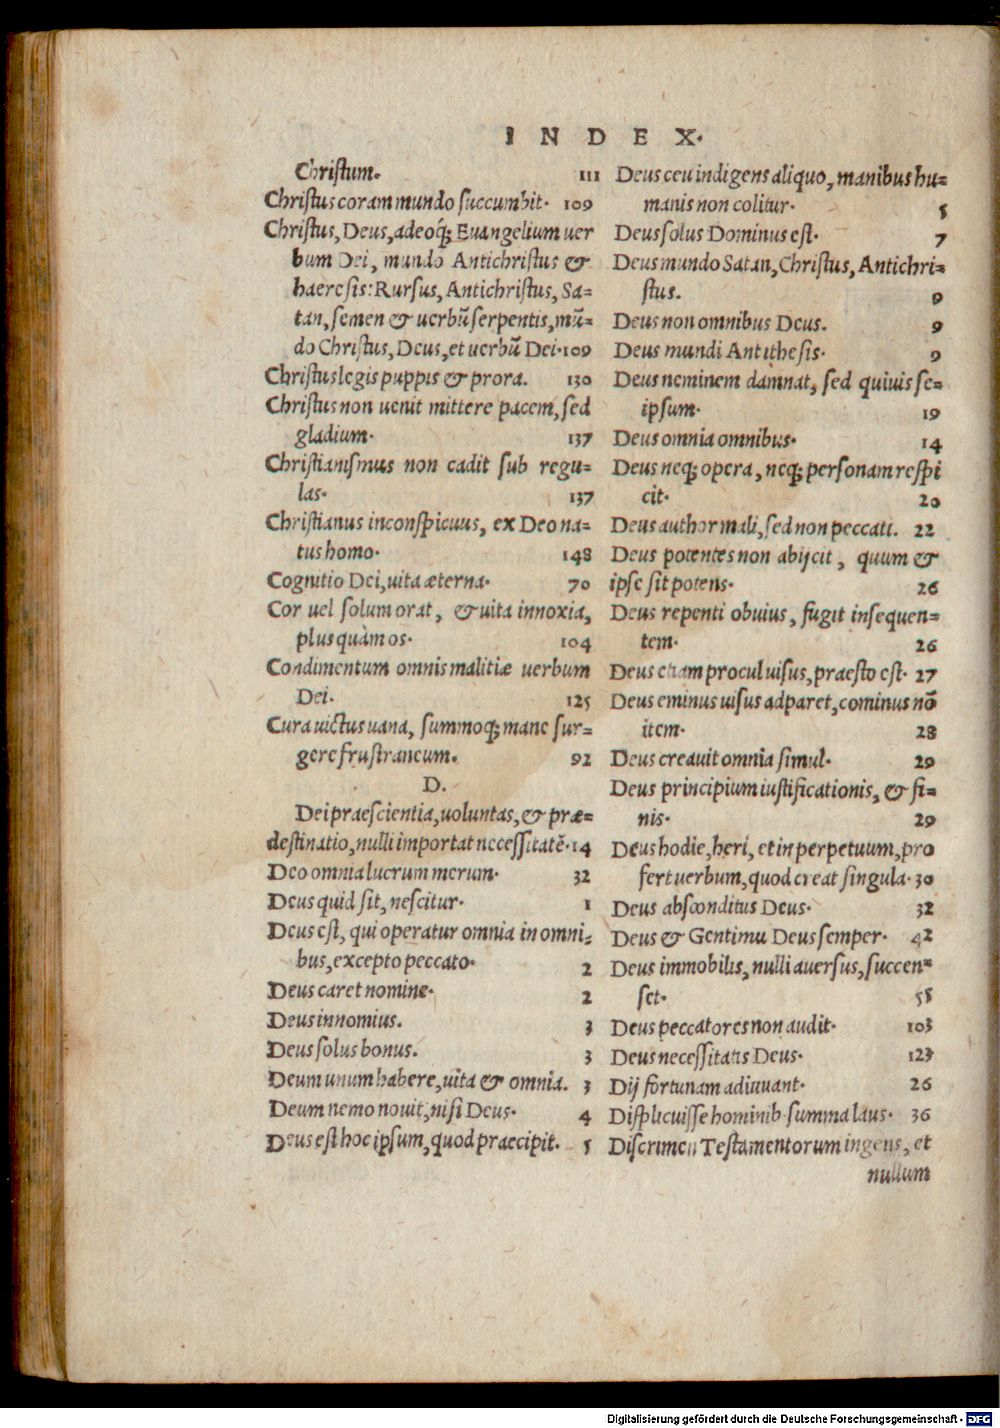 INDEX.
Christum. 111
Christus coram mundo succumbit. 109
Christus, Deus, adeoq́; Euangelium uer
bum Dei, mundo Antichristus &
haeresis: Rursus, Antichristus, Sa=
tan, semen & uerbũ serpentis, mũ=
do Christus, Deus, et uerbũ Dei. 109
Christus legis puppis & prora. 130
Christus non uenit mittere pacem, sed
gladium. 137
Christianismus non cadit sub regu=
las. 137
Christianus inconspicuus, ex Deo na=
tus homo. 148
Cognitio Dei, uita æterna. 70
Cor uel solum orat, & uita innoxia,
plus quàm os. 104
Condimentum omnis malitiæ uerbum
Dei. 125
Cura uictus uana, summoq; mane sur=
gere frustraneum. 92
D.
Dei praescientia, uoluntas, & præ=
destinatio, nulli importat necessitatẽ. 14
Deo omnia lucrum merum. 32
Deus quid sit, nescitur. 1
Deus est, qui operatur omnia in omni=
bus, excepto peccato. 2
Deus caret nomine. 2
Deus innomius. 3
Deus solus bonus. 3
Deum unum habere, uita & omnia. 3
Deum nemo nouit, nisi Deus. 4
Deus est hoc ipsum, quod praecipit. 5
Deus ceu indigens aliquo, manibus hu=
manis non colitur. 5
Deus solus Dominus est. 7
Deus mundo Satan, Christus, Antichri=
stus. 9
Deus non omnibus Deus. 9
Deus mundi Antithesis. 9
Deus neminem damnat, sed quiuis se=
ipsum. 19
Deus omnia omnibus. 14
Deus neq; opera, neq; personam respi
cit. 20
Deus author mali, sed non peccati. 22
Deus potentes non abijcit, quum &
ipse sit potens. 26
Deus repenti obuius, fugit insequen=
tem. 26
Deus etiam procul uisus, praesto est. 27
Deus eminus uisus adparet, cominus nõ
item. 28
Deus creauit omnia simul. 29
Deus principium iustificationis, & fi=
nis. 29
Deus hodie, heri, et in perpetuum, pro
fert uerbum, quod creat singula. 30
Deus absconditus Deus. 32
Deus & Gentium Deus semper. 42
Deus immobilis, nulli auersus, succen=
set. 58
Deus peccatores non audit. 103
Deus necessitatis Deus. 123
Dij fortunam adiuuant. 26
Displicuisse hominib. summa laus. 36
Discrimen Testamentorum ingens, et
nullum
Digitalisierung gefördert durch die Deutsche Forschungsgemeinschaft - DFG